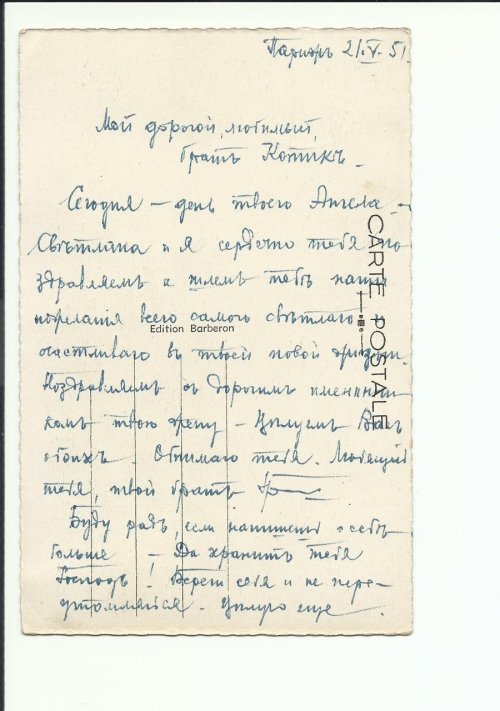 Парижъ 21.V.51.
Мой дорогой, любимый,
братъ Котикъ.
Сегодня — день твоего Ангела —
Свѣтлана и я сердечно тебя по
здравляемъ и шлемъ тебѣ наши
пожеланія всего самого свѣтлаго
Edition Barberon
счастливаго въ твоей новой жизни.
Поздравляемъ съ дорогимъ именинни
комъ твою жену — Цѣлуемъ Васъ
обоихъ. Обнимаю тебя. Любящій
тебя, твой братъ
Буду радъ, если напишешь о себѣ
больше — Да хранитъ тебя
Господь! Береги себя и не пере-
утомляйся. Цѣлую еще.
CARTE POSTALE